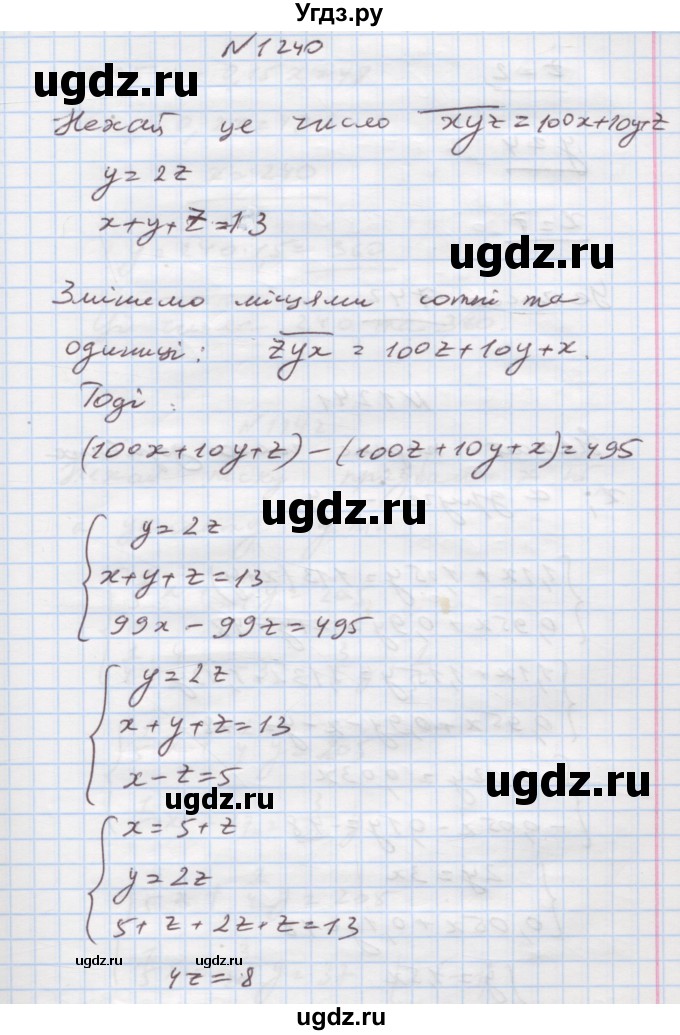 Угдз.ру
N 1240
ugdz.ru
Нехай це число xyz = 100x+10y+z
y = 2z
x+y+z=13
ugdz.ru
Змінемо місцями сотні та
одиниці: zyx = 100z+10y+x.
Тоді:
(100x+10y+z)-(100z+10y+x)=495
ugdz.ru
y=2z
x+y+z=13
99x-99z=495
y=2z
x+y+z=13
x-z=5
ugdz.ru
ugdz.ru
x=5+z
y=2z
5+z+2z+z=13
ugdz.ru ugdz.ru
4z=8
ugdz.ru